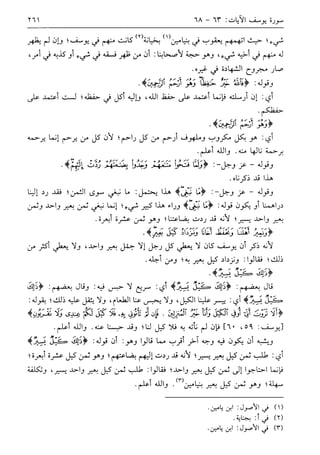 سورة يوسف الآيات: ٦٣ - ٦٨
٢٦١
شيء؛ حيث اتهمهم يعقوب في بنيامين(١) بخيانة(٢) كانت منهم في يوسف؛ وإن لم يظهر
له منهم في أخيه شيء، وهو حجة لأصحابنا: أن من ظهر فسقه في شيء أو كذبه في أمر،
صار مجروح الشهادة في غيره.
وقوله: ﴿فَاللَّهُ خَيْرٌ حَافِظًا وَهُوَ أَرْحَمُ الرَّاحِمِينَ﴾.
أي: إن أرسلته فإنما أعتمد على حفظ الله، وإليه أكل في حفظه؛ لست أعتمد على
حفظكم.
﴿وَهُوَ أَرْحَمُ الرَّاحِمِينَ﴾.
أي: هو بكل مكروب وملهوف أرحم من كل راحم؛ لأن كل من يرحم إنما يرحمه
برحمة نالها منه. والله أعلم.
وقوله - عز وجل-: ﴿وَلَمَّا فَتَحُوا مَتَاعَهُمْ وَجَدُوا بِضَاعَتَهُمْ رُدَّتْ إِلَيْهِمْ﴾.
هذا قد ذكرناه.
وقوله - عز وجل-: ﴿مَا نَبْغِي﴾ هذا يحتمل: ما نبغي سوى الثمن؛ فقد رد إلينا
دراهمنا أو يكون قوله: ﴿مَا نَبْغِي﴾ وراء هذا كبير شيء؛ إنما نبغي ثمن بعير واحد وثمن
بعير واحد يسير؛ لأنه قد ردت بضاعتنا؛ وهو ثمن عشرة أبعرة.
﴿وَنَمِيرُ أَهْلَنَا وَنَحْفَظُ أَخَانَا وَنَزْدَادُ كَيْلَ بَعِيرٍ﴾.
لأنه ذكر أن يوسف كان لا يعطي كل رجل إلا حِمل بعير واحد، ولا يعطي أكثر من
ذلك؛ فقالوا: ونزداد كيل بعير به؛ ومن أجله.
﴿ذَلِكَ كَيْلٌ يَسِيرٌ﴾.
قال بعضهم: ﴿ذَلِكَ كَيْلٌ يَسِيرٌ﴾ أي: سريع لا حبس فيه؛ وقال بعضهم: ﴿ذَلِكَ
كَيْلٌ يَسِيرٌ﴾ أي: ييسر علينا الكيل، ولا يحبس عنا الطعام، ولا يثقل عليه ذلك؛ بقوله:
﴿أَلَا تَرَوْنَ أَنِّي أُوفِي الْكَيْلَ وَأَنَا خَيْرُ الْمُنْزِلِينَ. فَإِنْ لَمْ تَأْتُونِي بِهِ فَلَا كَيْلَ لَكُمْ عِنْدِي وَلَا تَقْرَبُونِ﴾
[يوسف: ٥٩، ٦٠] فإن لم نأته به فلا كيل لنا؛ وقد حبسنا عنه. والله أعلم.
ويشبه أن يكون فيه وجه آخر أقرب مما قالوا وهو: أن قوله: ﴿ذَلِكَ كَيْلٌ يَسِيرٌ﴾
أي: طلب ثمن كيل بعير يسير؛ لأنه قد ردت إليهم بضاعتهم؛ وهو ثمن كيل عشرة أبعرة؛
فإنما احتاجوا إلى ثمن كيل بعير واحد؛ فقالوا: طلب ثمن كيل بعير واحد يسير، وتكلفة
سهلة؛ وهو ثمن كيل بعير بنيامين(٣). والله أعلم.
(١) في الأصول: ابن يامين.
(٢) في أ: بجناية.
(٣) في الأصول: ابن يامين.